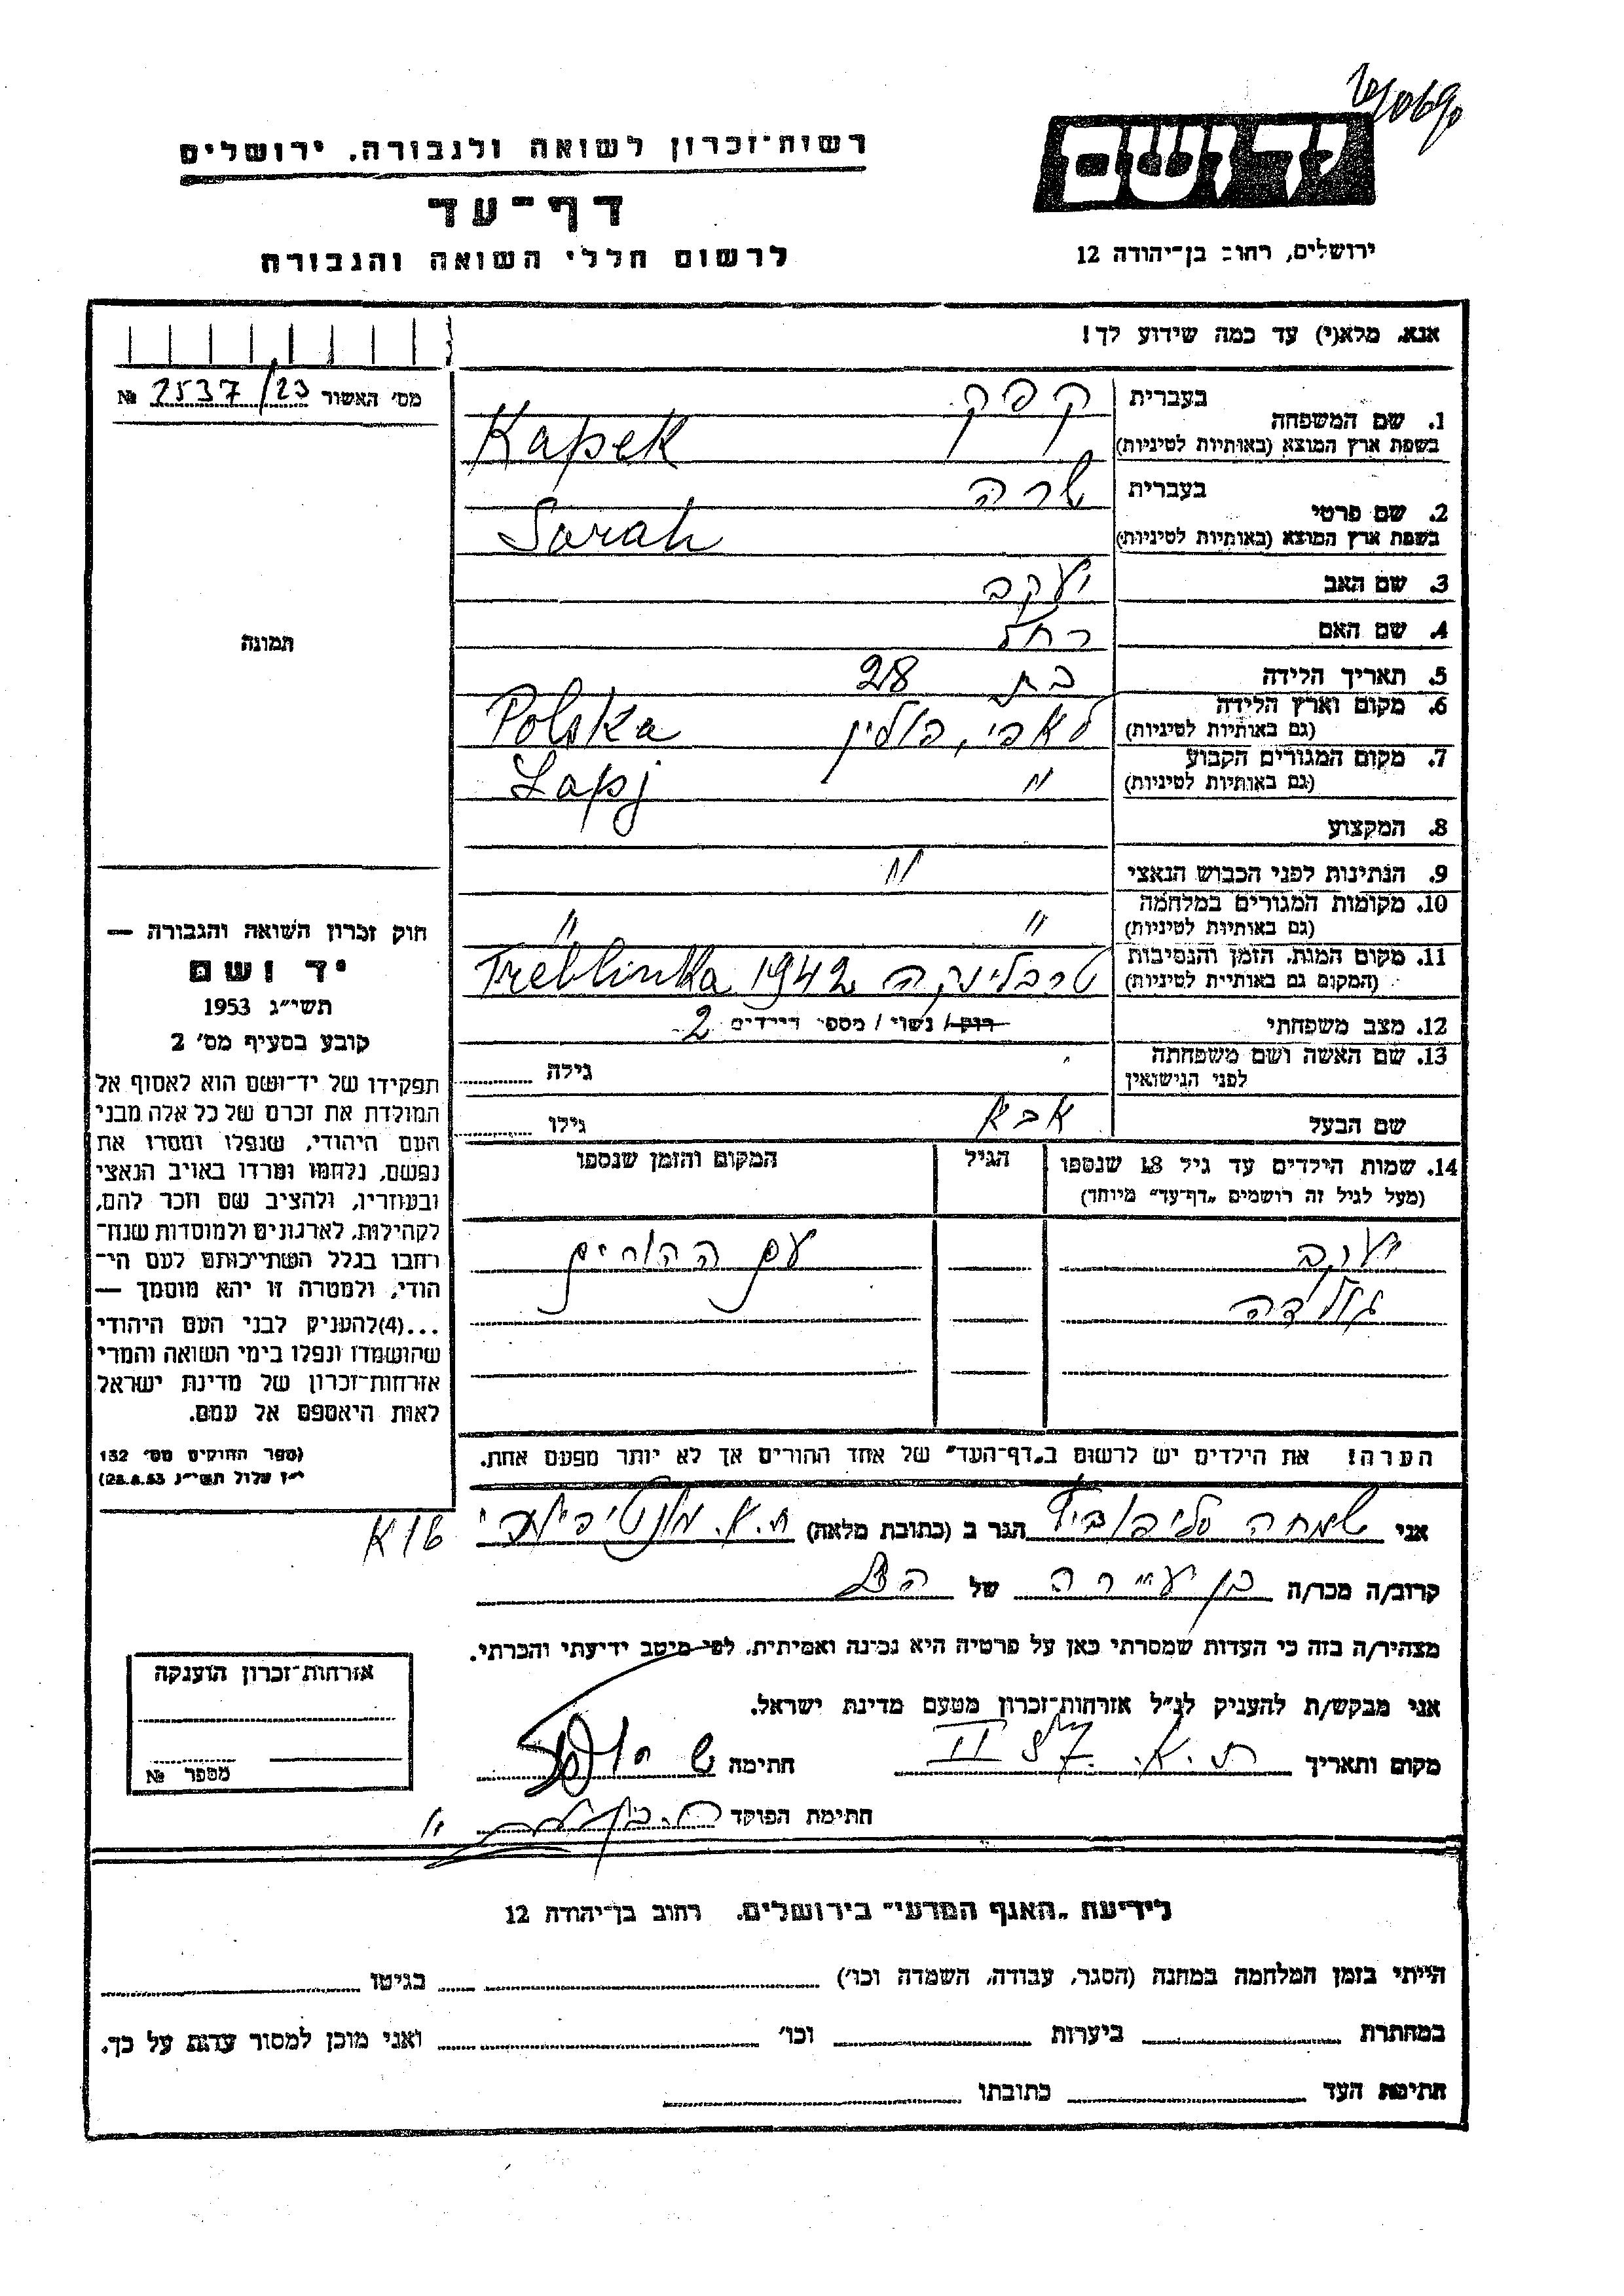 רשות־זכרון לשואה ולגבורה. ירושלים
יד ושם
דף־עד
לרשום חללי השואה והגבורה
ירושלים, רחוב בן־יהודה 12
אנא. מלא(י) עד כמה שידוע לך!
מס' האשור 2537/23 №
תמונה
1. שם המשפחה בעברית קפק
בשפת ארץ המוצא (באותיות לטיניות) Kapek
2. שם פרטי בעברית שרה
בשפת ארץ המוצא (באותיות לטיניות) Sarah
3. שם האב יעקב
4. שם האם רחל
5. תאריך הלידה בת 28
6. מקום וארץ הלידה (גם באותיות לטיניות) לאפי, פולין Polska
7. מקום המגורים הקבוע (גם באותיות לטיניות) " Lapj
8. המקצוע
9. הנתינות לפני הכבוש הנאצי "
10. מקומות המגורים במלחמה (גם באותיות לטיניות) " "
11. מקום המות. הזמן והנסיבות (המקום גם באותיית לטיניות) טרבלינקה 1942 Treblinka
12. מצב משפחתי רוק/ נשוי/ מספר הילדים 2
13. שם האשה ושם משפחתה לפני הנישואין גילה
שם הבעל אבא גילו
14. שמות הילדים עד גיל 18 שנספו הגיל המקום והזמן שנספו
(מעל לגיל זה רושמים „דף־עד" מיוחד)
יעקב עם ההורים
גולדה
הערה! את הילדים יש לרשום ב„דף־העד" של אחד ההורים אך לא יותר מפעם אחת.
חוק זכרון השואה והגבורה —
יד ושם
תשי"ג 1953
קובע בסעיף מס' 2
תפקידו של יד־ושם הוא לאסוף אל
המולדת את זכרם של כל אלה מבני
העם היהודי, שנפלו ומסרו את
נפשם, נלחמו ומרדו באויב הנאצי
ובעוזריו, ולהציב שם וזכר להם,
לקהילות, לארגונים ולמוסדות שנח־
רחבו בגלל השתייכותם לעם הי־
הודי, ולמטרה זו יהא מוסמך —
...(4)להעניק לבני העם היהודי
שהושמדו ונפלו בימי השואה והמרי
אזרחות־זכרון של מדינת ישראל
לאות היאספם אל עמם.
(ספר החוקים מס' 132
י"ז אלול תשי"ג 28.8.53)
אני שמחה הגר ב (כתובת מלאה) ת.א. מונטיפיורי 16 א
קרוב/ה מכר/ה בן עיירה של הנ"ל
מצהיר/ה בזה כי העדות שמסרתי כאן על פרטיה היא נכונה ואמיתית. לפי מיטב ידיעתי והכרתי.
אני מבקש/ת להעניק לנ"ל אזרחות־זכרון מטעם מדינת ישראל.
מקום ותאריך ת.א. II 57 חתימה
חתימת הפוקד
אזרחות־זכרון הוענקה
מספר №
לידיעת „האגף המדעי" בירושלים. רחוב בן־יהודה 12
הייתי בזמן המלחמה במחנה (הסגר, עבודה, השמדה וכו') בגיטו
במחתרת ביערות וכו' ואני מוכן למסור עדות על כך.
חתימת העד כתובתו